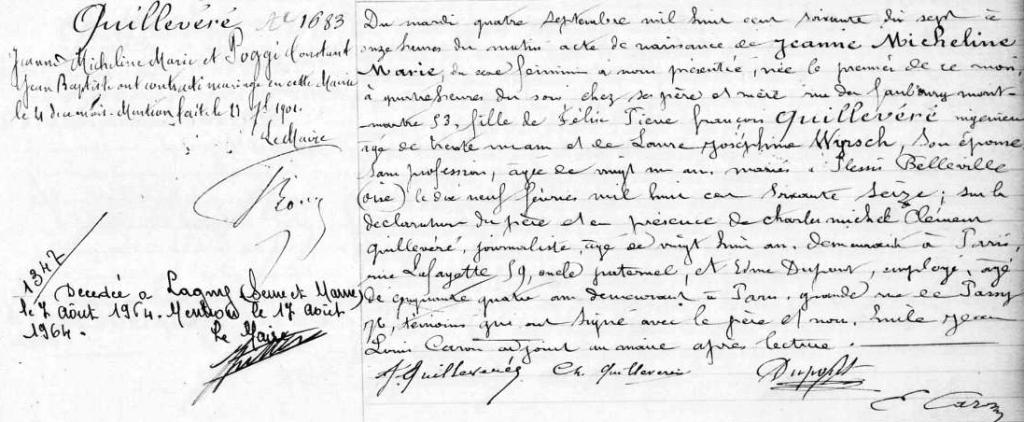 Quillevéré No 1683
Jeanne Micheline Marie et Poggi Constant
Jean Baptiste ont contracté mariage en cette Mairie
le 4 du mois. Mention faite le 11 1901.
Le Maire
1347
Décédée à Lagny (Seine et Marne)
le 7 Août 1964. Mention le 17 Août
1964.
Le Maire
Du mardi quatre septembre mil huit cent soixante dix sept à
onze heures du matin acte de naissance de Jeanne Micheline
Marie, du sexe féminin à nous présentée, née le premier de ce mois,
à quatre heures du soir chez ses père et mère rue du faubourg mont-
martre 53, fille de Félix Pierre françois Quillevéré ingénieur
âgé de trente un ans et de Laure Joséphine Wyrsch, son épouse
sans profession, âgée de vingt un ans. mariés à Plessis Belleville
(oise) le dix neuf février mil huit cent soixante seize; sur la
déclaration du père et en présence de charles michel Clément
Quillevéré, journaliste, âgé de vingt huit ans. demeurant à Paris,
rue Lafayette 59, oncle paternel, et Edme Dupont, employé, agé
de cinquante quatre ans demeurant à Paris, grande rue de Passy
76, témoins qui ont signé avec le père et nous. Emile Jean
Louis Caron adjoint au maire après lecture.
F. Quillevéré Ch. Quillevéré Dupont
E Caron